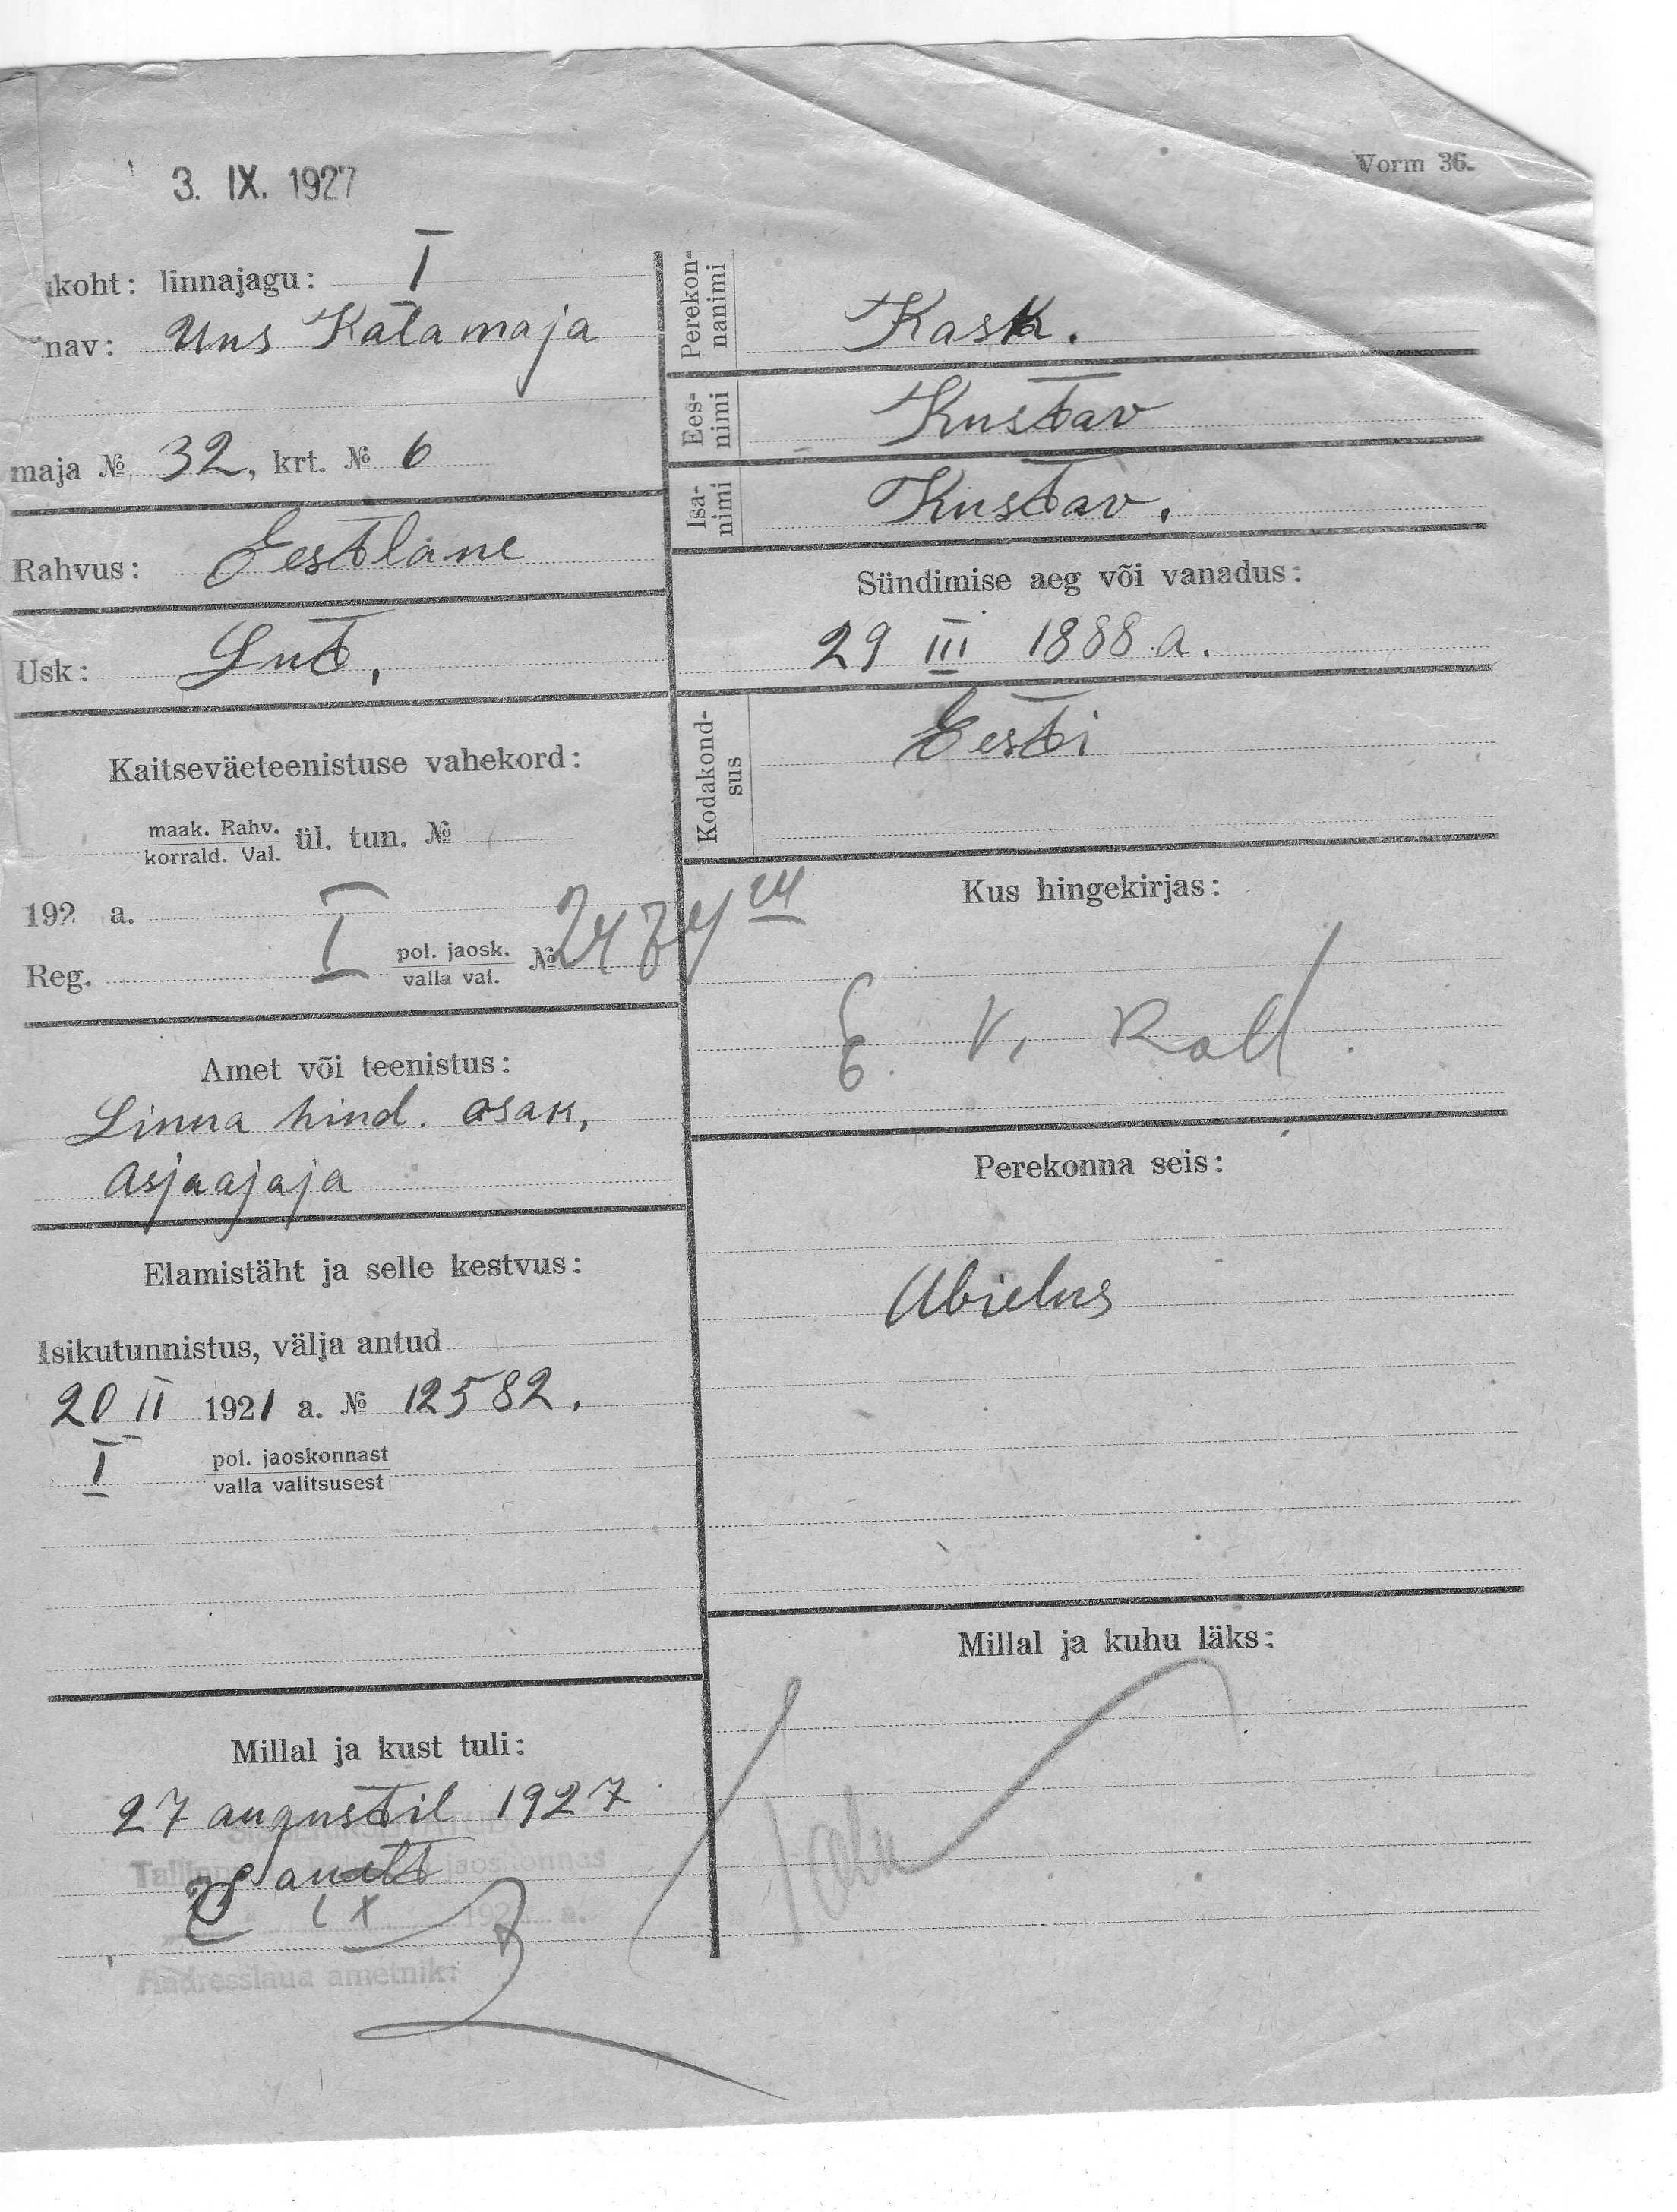 3. IX. 1927
Vorm 36.
koht: linnajagu: I
nav: Uus Kalamaja
maja № 32, krt. № 6
Rahvus: Eestlane
Usk: Lut.
Kaitseväeteenistuse vahekord:
maak. Rahv.
korrald. Val. ül. tun. №
192 a.
Reg. I pol. jaosk.
valla val. №
Amet või teenistus:
Linna hind. osak,
asjaajaja
Elamistäht ja selle kestvus:
Isikutunnistus, välja antud
20 II 1921 a. № 12582.
I pol. jaoskonnast
valla valitsusest
Millal ja kust tuli:
27 augustil 1927
Tallinna jaoskonnas
IX 192 a.
Aadresslaua ametnik:
Perekon-
nanimi Kask.
Ees-
nimi Kustav
Isa-
nimi Kustav.
Sündimise aeg või vanadus:
29 III 1888 a.
Kodakond-
sus Eesti
Kus hingekirjas:
E. V.
Perekonna seis:
Abielus
Millal ja kuhu läks: